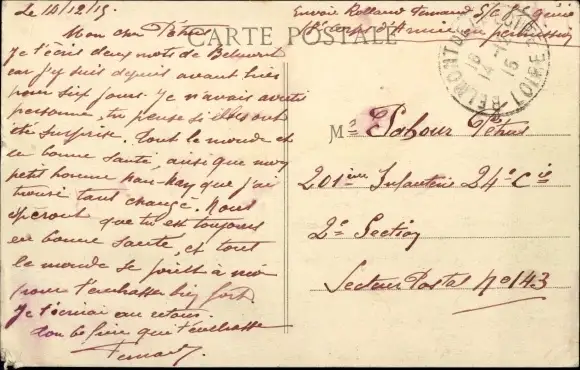 Le 14/12/15
Mon cher Pétrus
Je t'écris deux mots de Belmont
car j'y suis depuis avant hier
pour six jours. Je n'avais averti
personne, tu penses si ils ont
été surpris. Tout le monde est
en bonne santé, ainsi que mon
petit homme que j'ai
trouvé tant changé. Nous
espérons que tu est toujours
en bonne santé, et tout
le monde se joint à moi
pour t'embrasser bien fort
Je t'écrirai au retour.
Ton Be frère qui t'embrasse
Fernand
CARTE POSTALE
Envoie Rolland Fernand S/C Génie
Corps d'Armée en permission
BELMONT DE LA LOIRE
14-12
15
M Pabour Pétrus
201ième Infanterie 24e Cie
2e Section
Secteur Postal No 143